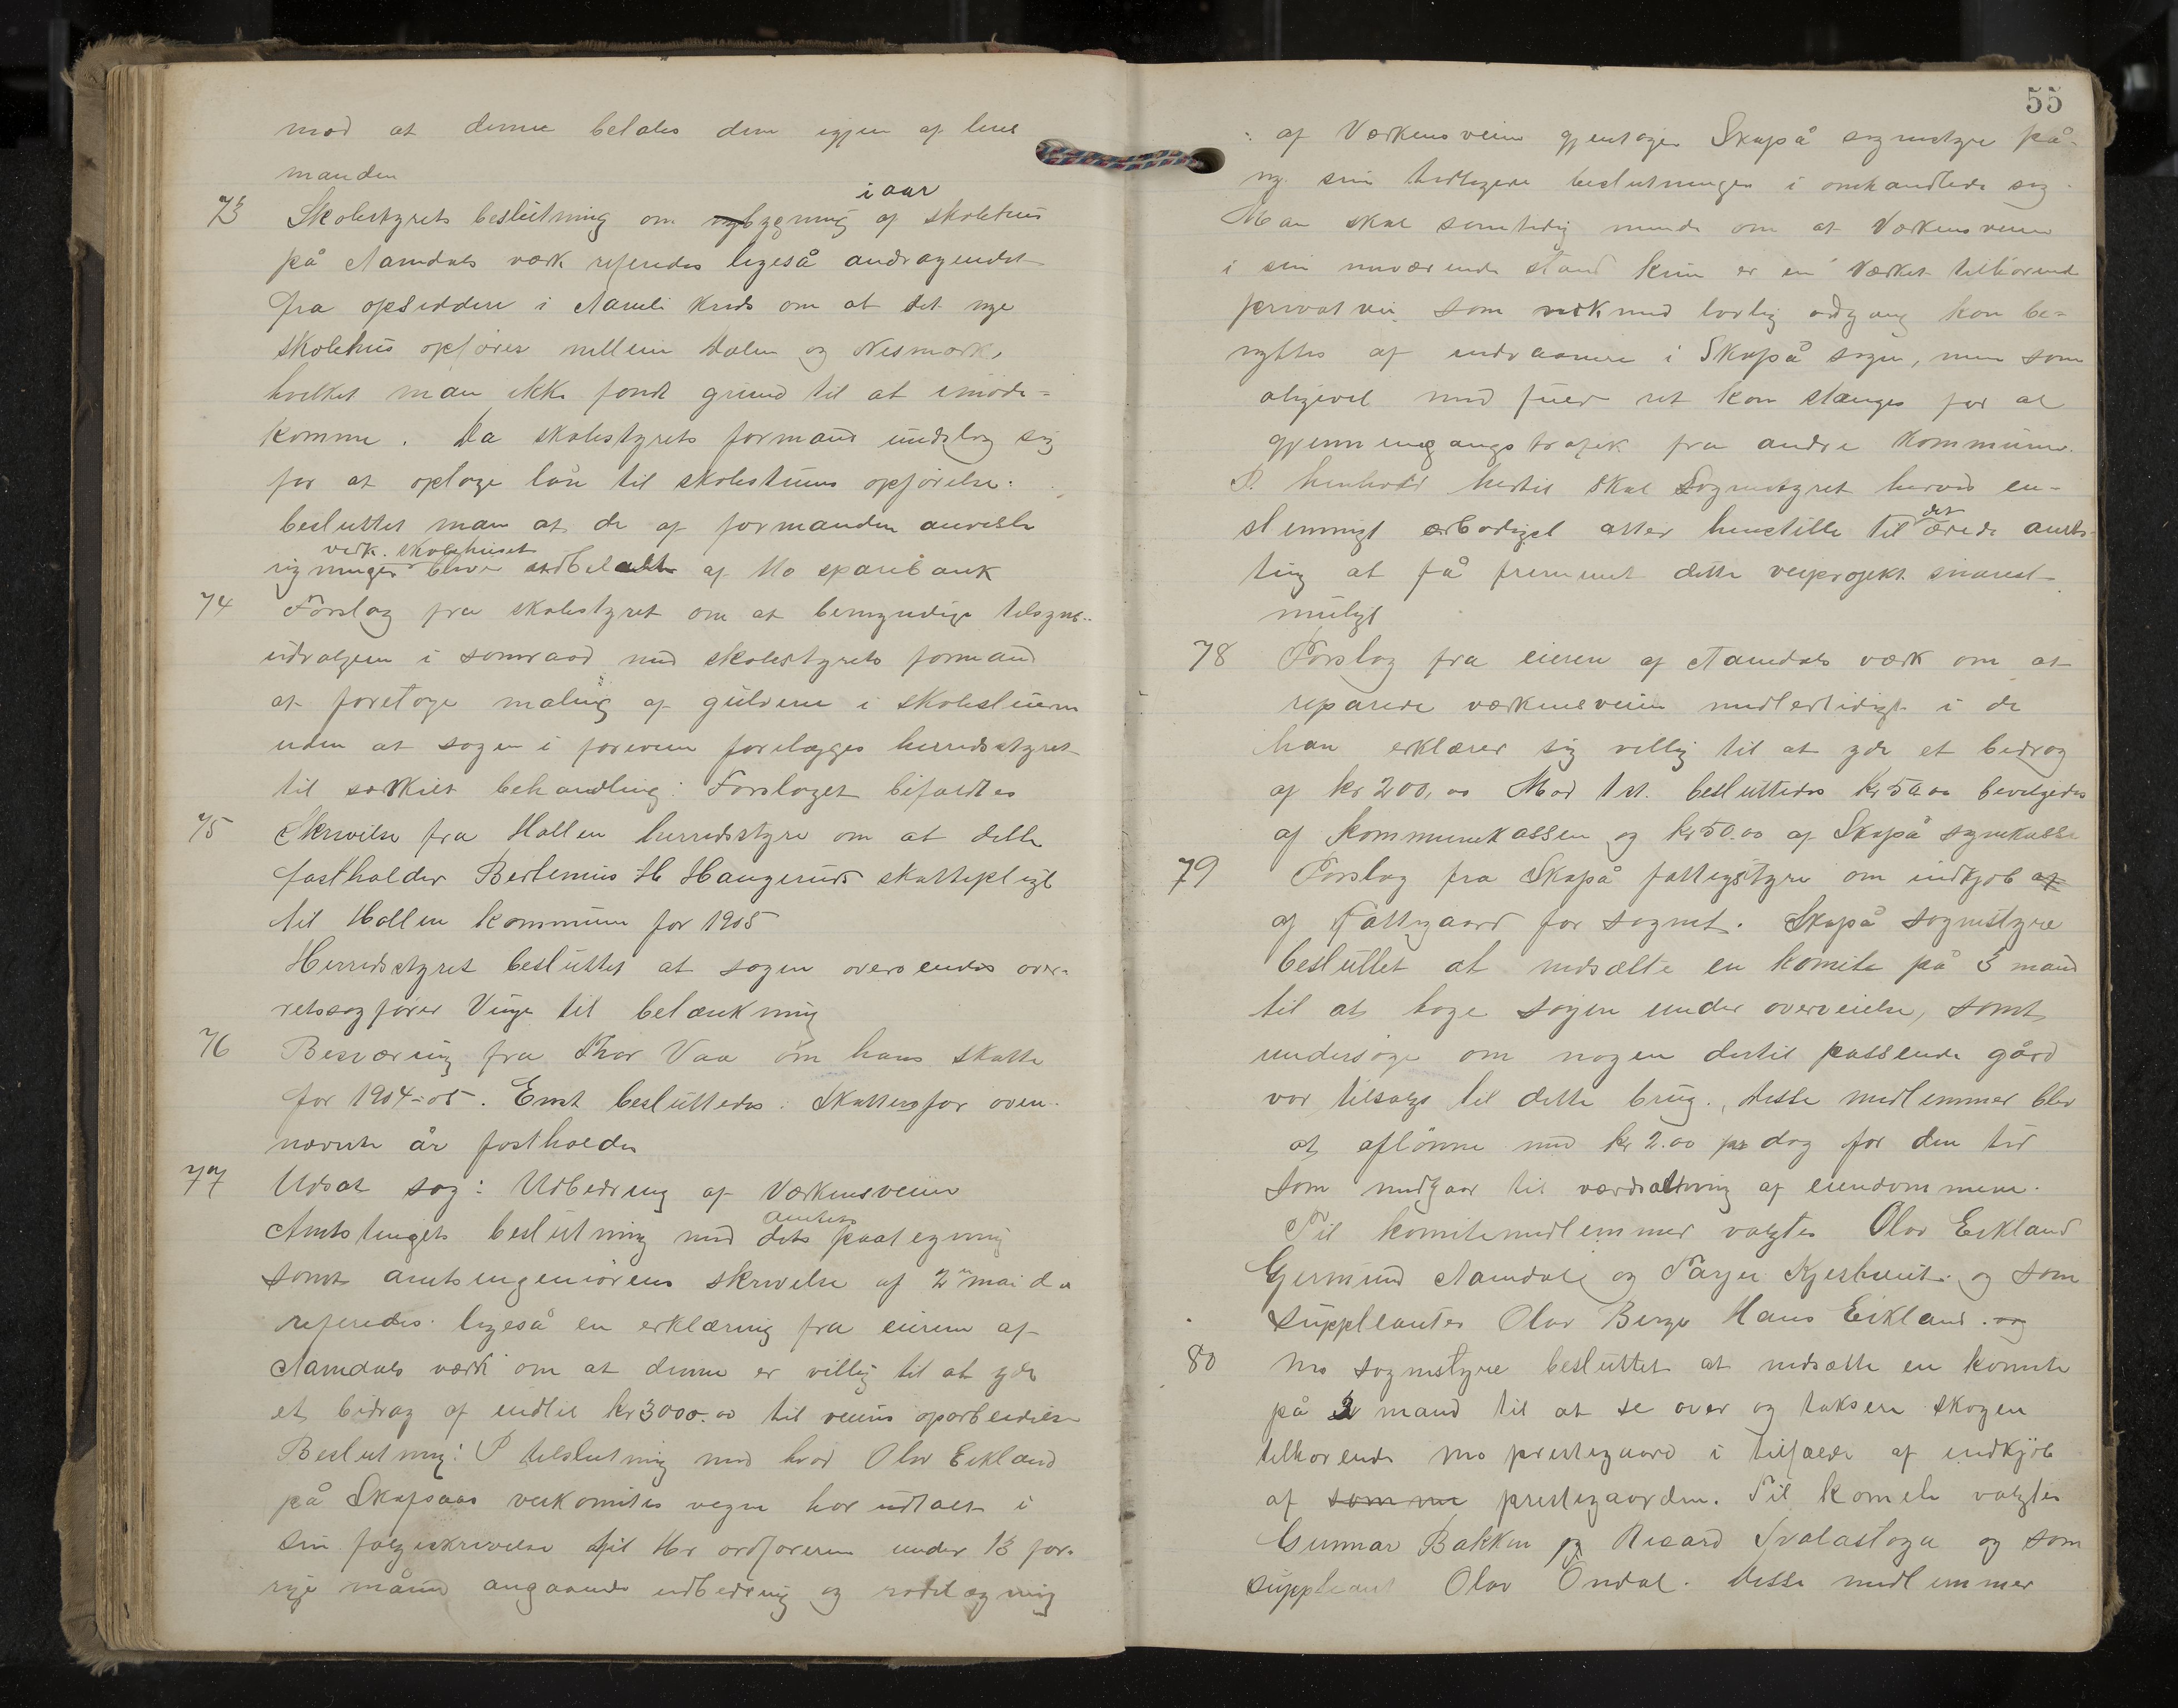 mod at denne betales dem igjen af lens
manden
i aar
73 Skolestyrets beslutning om nybygning af skolehus
på Aamdals værk referedes ligeså andragendet
fra opsiddere i Aamli kreds om at det nye
skolehus opføres mellem Dalen og Nesmark,
hvilket man ikke fandt grund til at imøde=
komme. Da skolestyrets formand undslog sig
for at optage lån til skolestuens opførelse.
besluttet man at de af formanden anviste
vedk. skolehuset
rigninger blive udbetalt af Mo sparebank
74 Forslag fra skolestyret om at bemyndige tilsyns-
udvalgene i samraad med skolestyrets formand
at foretage maling af gulvene i skolestuerne
uden at sagen i forveien forelægges herredsstyret
til særskilt behandling: Forslaget bifaldtes
75 Skrivelse fra Hollen herredsstyre om at dette
fastholder Bertenius H Haugeruds skattepligt
til Hollen kommune for 1905
Herredsstyret besluttet at sagen oversendes over-
retssagfører Vinje til betænkning
76 Besværing fra Thor Vaa om hans skatte
for 1904-05. Enst besluttedes: Skatten for oven-
nævnte år fastholdes
77 Udsat sag: Udbedring af Værkensveien
Amtstingets beslutning med dets paategning
amtets
samt amtsingeniørens skrivelse af 2n mai d a
referedes. ligeså en erklæring fra eieren af
Aamdals værk om at denne er villig til at yde
et bidrag af indtil kr 3000.00 til veiens oparbeidelse
Beslutning: I tilslutning med hvad Olav Eikland
på Skafsaas veikomites vegne har udtalt i
sin følgeskrivelse til Hr ordføreren under 13 for-
rige måned angaaende udbedring og
55
af Værkensveien gjentager Skapså sognestyre på
ny sin tidligere beslutninger i omhandlede sag.
Man skal samtidig minde om at Værkensveien
i sin nuværende stand kun er en Værket tilhørende
privat vei, som nok med lovlig adgang kan be=
nyttes af indvaanere i Skapså sogn, men som
aligevel med fuld ret kan stænges for al
gjennemgangstrafik fra andre kommuner.
I henhold hertil skal Sognestyret herved en-
stemmigt ærbødigst atter henstille til det ærede amts-
ting at få fremmet dette veiprojekt snarest
muligt
78 Forslag fra eieren af Aamdals værk om at
reparere værkensveien midlertidigt i de
han erklærer sig villig til at yde et bidrag
af kr 200,00 Mod 1 st. besluttedes kr 50.00 bevilgedes
af kommunekassen og kr 50.00 af Skapså sognekasse
79 Forslag fra Skapså fattigstyre om indkjøb af
af Fattiggaard for sognet. Skapså sognestyre
besluttet at nedsætte en komite på 3 mand
til at tage sagen under overveielse, samt
undersøge om nogen dertil passende gård
var tilsalgs til dette brug. Disse medlemmer blev
at aflønne med kr 2.00 pr dag for den tid
som medgaar til værdsætning af eiendommene.
Til komitemedlemmer valgtes Olav Eikland
Gjermund Aamdal og Tarjei Kjerhveit: og som
suppleanter Olav Berge Hans Eikland. og
80 Mo sognestyre besluttet at nedsætte en komite
på 2 mand til at se over og taksere skogen
tilhørende mo prestegaard i tilfælde af indkjøb
af som me prestegaarden. Til komite valgtes
Gunnar Bakken og Ricard Svalastoga og som
suppleant Olav Ondal. Disse medlemmer